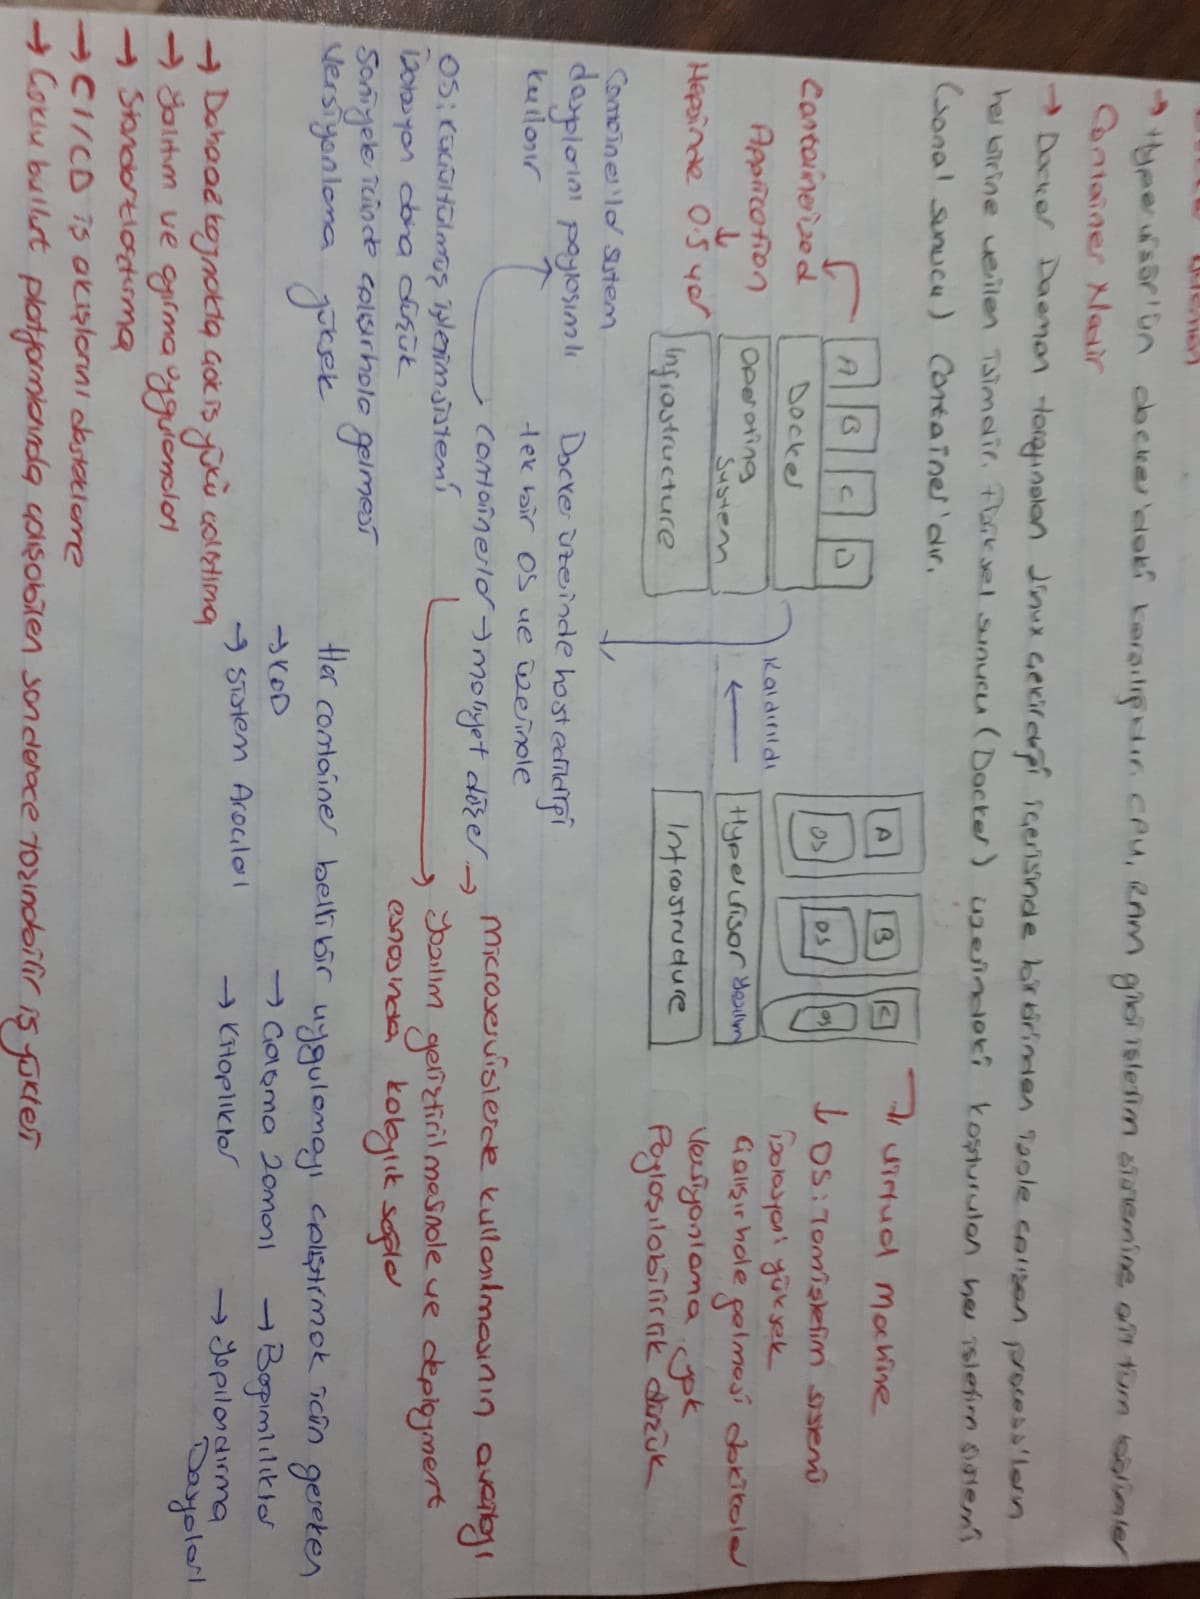 Docker Daemon
→ Hypervisör'ün docker'daki karşılığıdır. CPU, RAM gibi işletim sistemine ait tüm bölümler
Container Nedir
→ Docker Daemon tarafından Linux çekirdeği içerisinde birbirinden izole çalışan process'lerin
her birine verilen isimdir. Fiziksel sunucu (Docker) üzerindeki koşturulan her işletim sistemi
(sanal sunucu) Container'dır.
A B C D
Docker
Operating System
Infrastructure
Containerized
Application
↓
Hepsinde 0.5 yer
Kaldırıldı
←
A B C
OS OS OS
Hypervisor Yazılım
Infrastructure
→ Virtual Machine
↓ OS: Tam işletim sistemi
İzolasyon: yüksek
Çalışır hale gelmesi dakikalar
Versiyonlama yok
Paylaşılabilirlik düşük
Container'lar sistem
dosyalarını paylaşımlı
kullanır
Docker üzerinde host edildiği
tek bir OS ve üzerinde
containerlar → maliyet düşer → microservislerde kullanılmasının avantajı
Yazılım geliştirilmesinde ve deployment
esnasında kolaylık sağlar
OS: Küçültülmüş işletim sistemi
İzolasyon daha düşük
Saniyeler içinde çalışır hale gelmesi
Versiyonlama yüksek
Her container belli bir uygulamayı çalıştırmak için gereken
→ KOD → Çalışma zamanı → Bağımlılıklar
→ Sistem Araçları → Kitaplıklar → Yapılandırma Dosyaları
→ Daha az kaynakta çok iş yükü çalıştırma
→ Yalıtım ve ayırma uygulamaları
→ Standartlaştırma
→ CI/CD iş akışlarını destekleme
→ Çoklu bulut platformlarında çalışabilen son derece taşınabilir iş yükleri